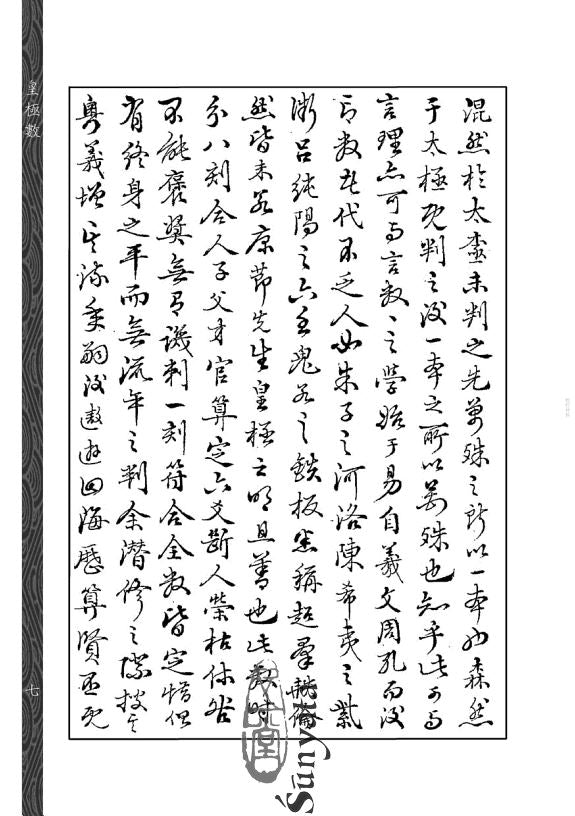 混然於太極未判之先萬殊之所以一本也森然
于太極既判之後一本之所以萬殊也知乎此可与
言理亦可与言数数之學始于易自義文周孔而後
言数者代不乏人如朱子之河洛陳希夷之紫
微呂純陽之六壬鬼谷之鉄板悉稱超羣軼倫
然皆未若康節先生皇極之明且善也此数時
分八刻合人子父身官算定六爻斷人榮枯休咎
不能褒奬無有譏刺一刻符合全数皆定惜但
有終身之平而無流年之判余潛修之際按其
奧義增其流年嗣後遨遊四海歷算賢否既
皇極數
七
Śūnyatā